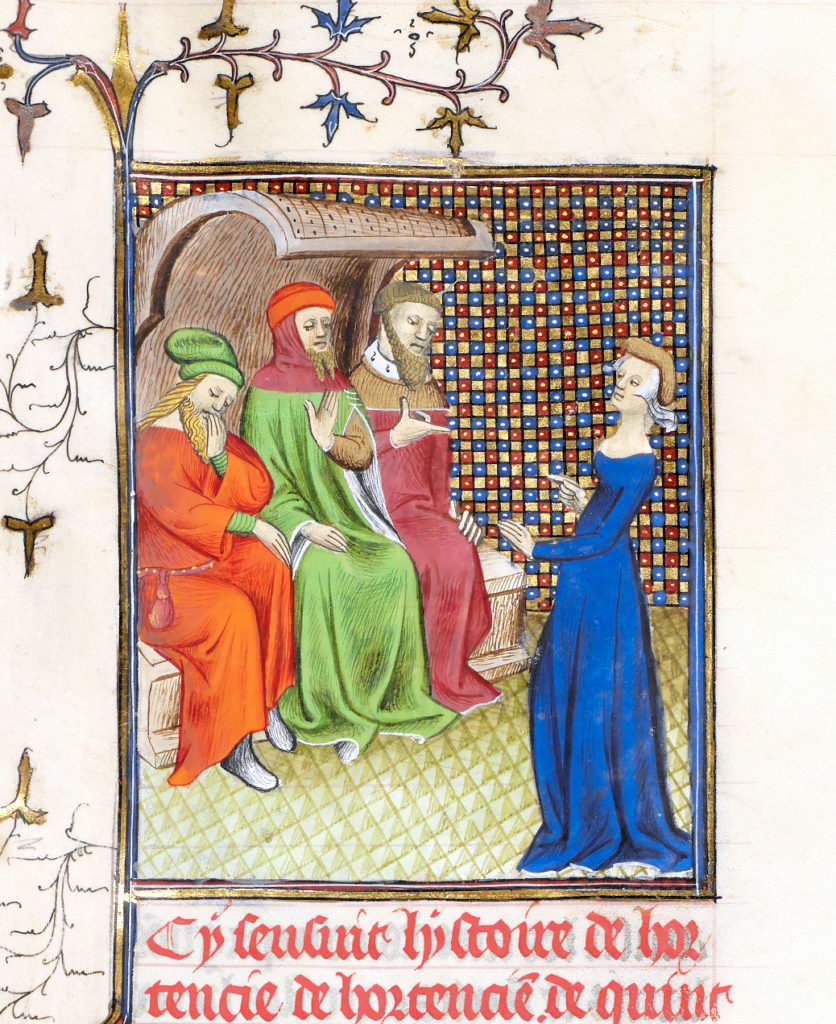 Cy sensuit lhystoire de hor
tencie de hortenciē. de quint